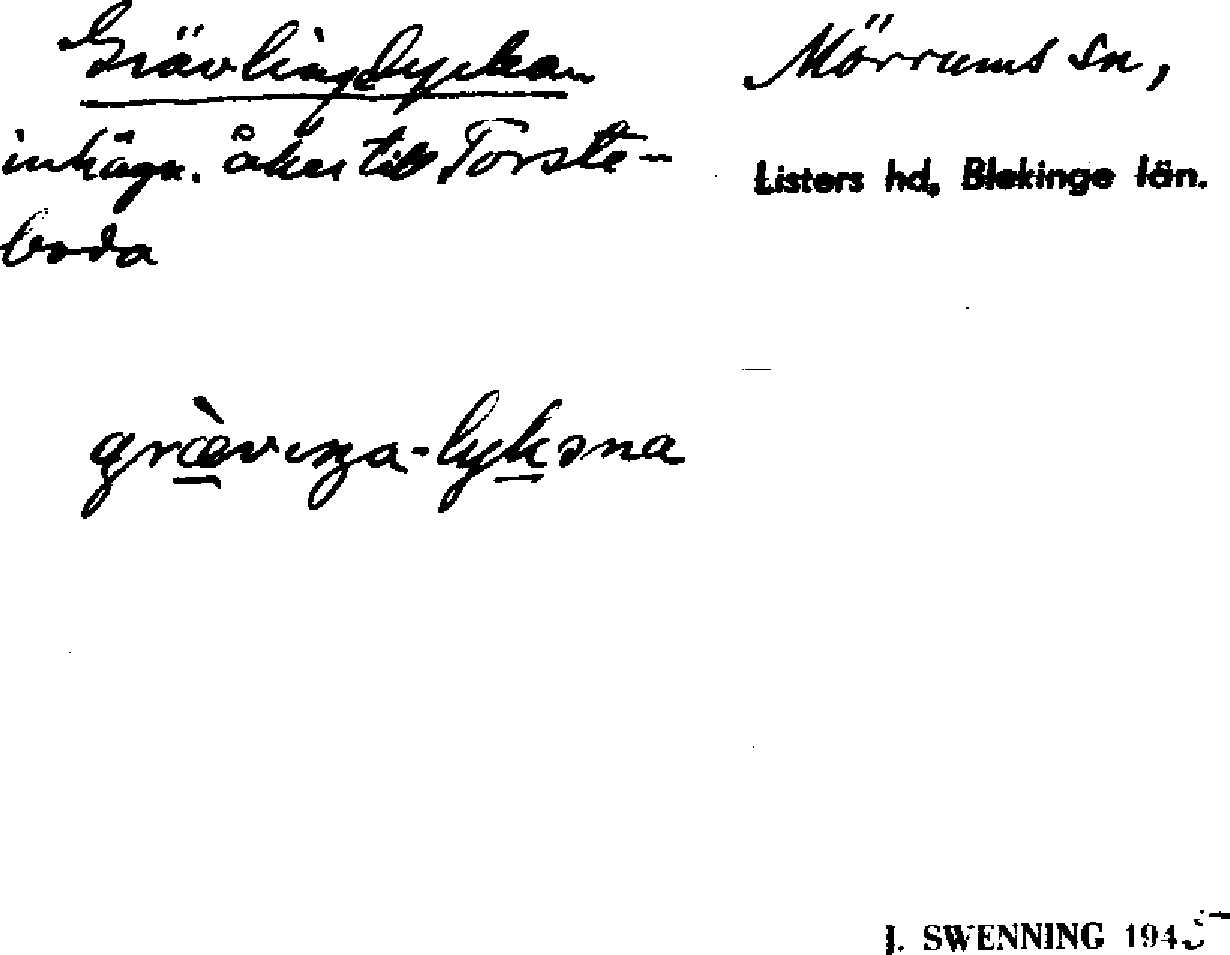 Grävlingslyckan
inhägn. åker till Torste-
boda
Mörrums sn,
Listers hd, Blekinge län.
græviŋa-lykəna
J. SWENNING 1945